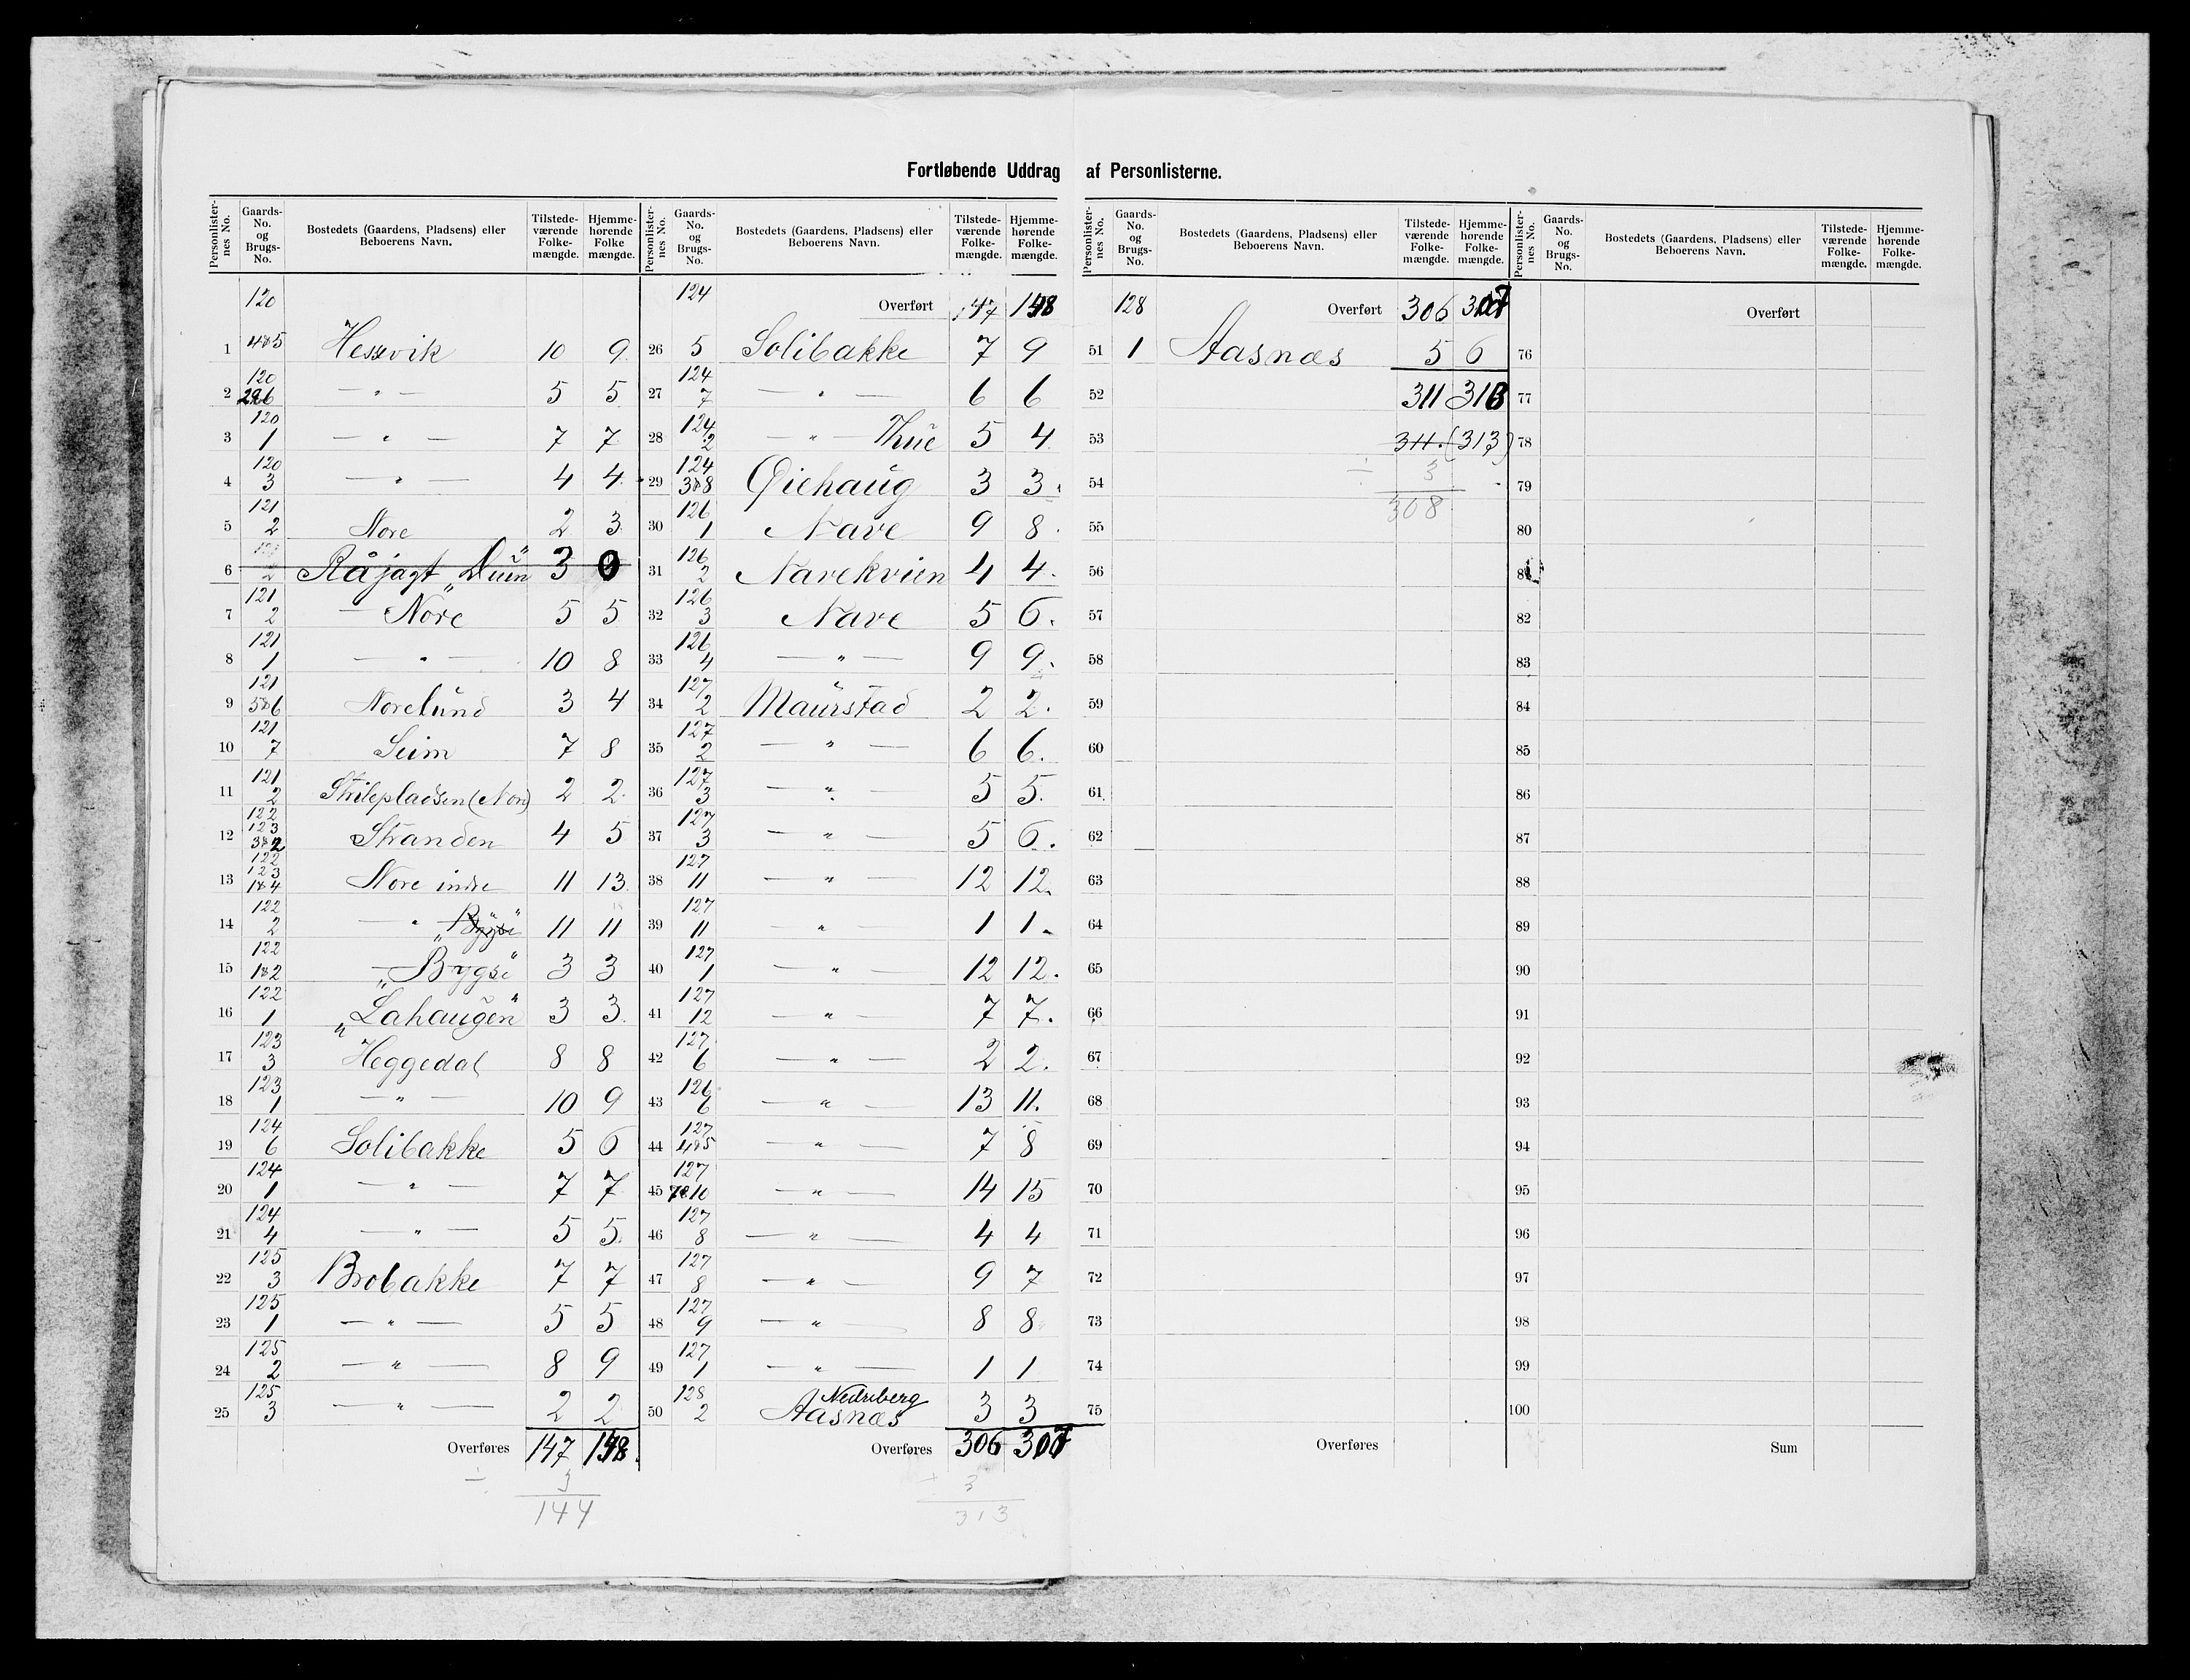 Fortløbende Uddrag af Personlisterne.
Personlister-nes No. | Gaards-No. og Brugs-No. | Bostedets (Gaardens, Pladsens) eller Beboerens Navn. | Tilstede-værende Folke-mængde. | Hjemme-hørende Folke mængde.
1 | 120 4&5 | Hessvik | 10 | 9
2 | 120 2&6 | — " — | 5 | 5
3 | 120 1 | — " — | 7 | 7
4 | 120 3 | — " — | 4 | 4
5 | 121 2 | Nore | 2 | 3
6 | 2 | Råjagt „Duen" | 3 | 0
7 | 121 2 | — Nore | 5 | 5
8 | 121 1 | — " — | 10 | 8
9 | 121 5&6 | Norelund | 3 | 4
10 | 121 7 | Seim | 7 | 8
11 | 121 2 | Strilepladsen (Nore) | 2 | 2
12 | 122 123 3&2 | Stranden | 4 | 5
13 | 122 123 1&4 | Nore indre | 11 | 13
14 | 122 2 | — " „Bygse" | 11 | 11
15 | 122 1&2 | — „Bygse" | 3 | 3
16 | 122 1 | „Lahaugen" | 3 | 3
17 | 123 3 | Heggedal | 8 | 8
18 | 123 1 | — " — | 10 | 9
19 | 124 6 | Solibakke | 5 | 6
20 | 124 1 | — " — | 7 | 7
21 | 124 4 | — " — | 5 | 5
22 | 125 3 | Brobakke | 7 | 7
23 | 125 1 | — " — | 5 | 5
24 | 125 2 | — " — | 8 | 9
25 | 125 3 | — " — | 2 | 2
Overføres | 147 | 148
÷ 3
144
Personlister-nes No. | Gaards-No. og Brugs-No. | Bostedets (Gaardens, Pladsens) eller Beboerens Navn. | Tilstede-værende Folke-mængde. | Hjemme-hørende Folke-mængde.
124 | Overført | 147 | 148
26 | 5 | Solibakke | 7 | 9
27 | 124 7 | — " — | 6 | 6
28 | 124 2 | — " — Thue | 5 | 4
29 | 124 3&8 | Øiehaug | 3 | 3
30 | 126 1 | Nave | 9 | 8
31 | 126 2 | Navekvien | 4 | 4
32 | 126 3 | Nave | 5 | 6
33 | 126 4 | — " — | 9 | 9
34 | 127 2 | Maurstad | 2 | 2
35 | 127 2 | — " — | 6 | 6
36 | 127 3 | — " — | 5 | 5
37 | 127 3 | — " — | 5 | 6
38 | 127 11 | — " — | 12 | 12
39 | 127 11 | — " — | 1 | 1
40 | 127 1 | — " — | 12 | 12
41 | 127 12 | — " — | 7 | 7
42 | 127 6 | — " — | 2 | 2
43 | 126 6 | — " — | 13 | 11
44 | 127 4&5 | — " — | 7 | 8
45 | 127 7&10 | — " — | 14 | 15
46 | 127 8 | — " — | 4 | 4
47 | 127 8 | — " — | 9 | 7
48 | 127 9 | — " — | 8 | 8
49 | 127 1 | — " — | 1 | 1
50 | 128 2 | Nedreberg Aasnæs | 3 | 3
Overføres | 306 | 307
÷ 3
313
Personlister-nes No. | Gaards-No. og Brugs-No. | Bostedets (Gaardens, Pladsens) eller Beboerens Navn. | Tilstede-værende Folke-mængde. | Hjemme-hørende Folke-mængde.
128 | Overført | 306 | 307
51 | 1 | Aasnæs | 5 | 6
52 | 311 | 313
53 | 311. | (313)
54 | ÷ 3
55 | 308
56
57
58
59
60
61
62
63
64
65
66
67
68
69
70
71
72
73
74
75
Overføres
Personlister-nes No. | Gaards-No. og Brugs-No. | Bostedets (Gaardens, Pladsens) eller Beboerens Navn. | Tilstede-værende Folke-mængde. | Hjemme-hørende Folke-mængde.
Overført
76
77
78
79
80
81
82
83
84
85
86
87
88
89
90
91
92
93
94
95
96
97
98
99
100
Sum